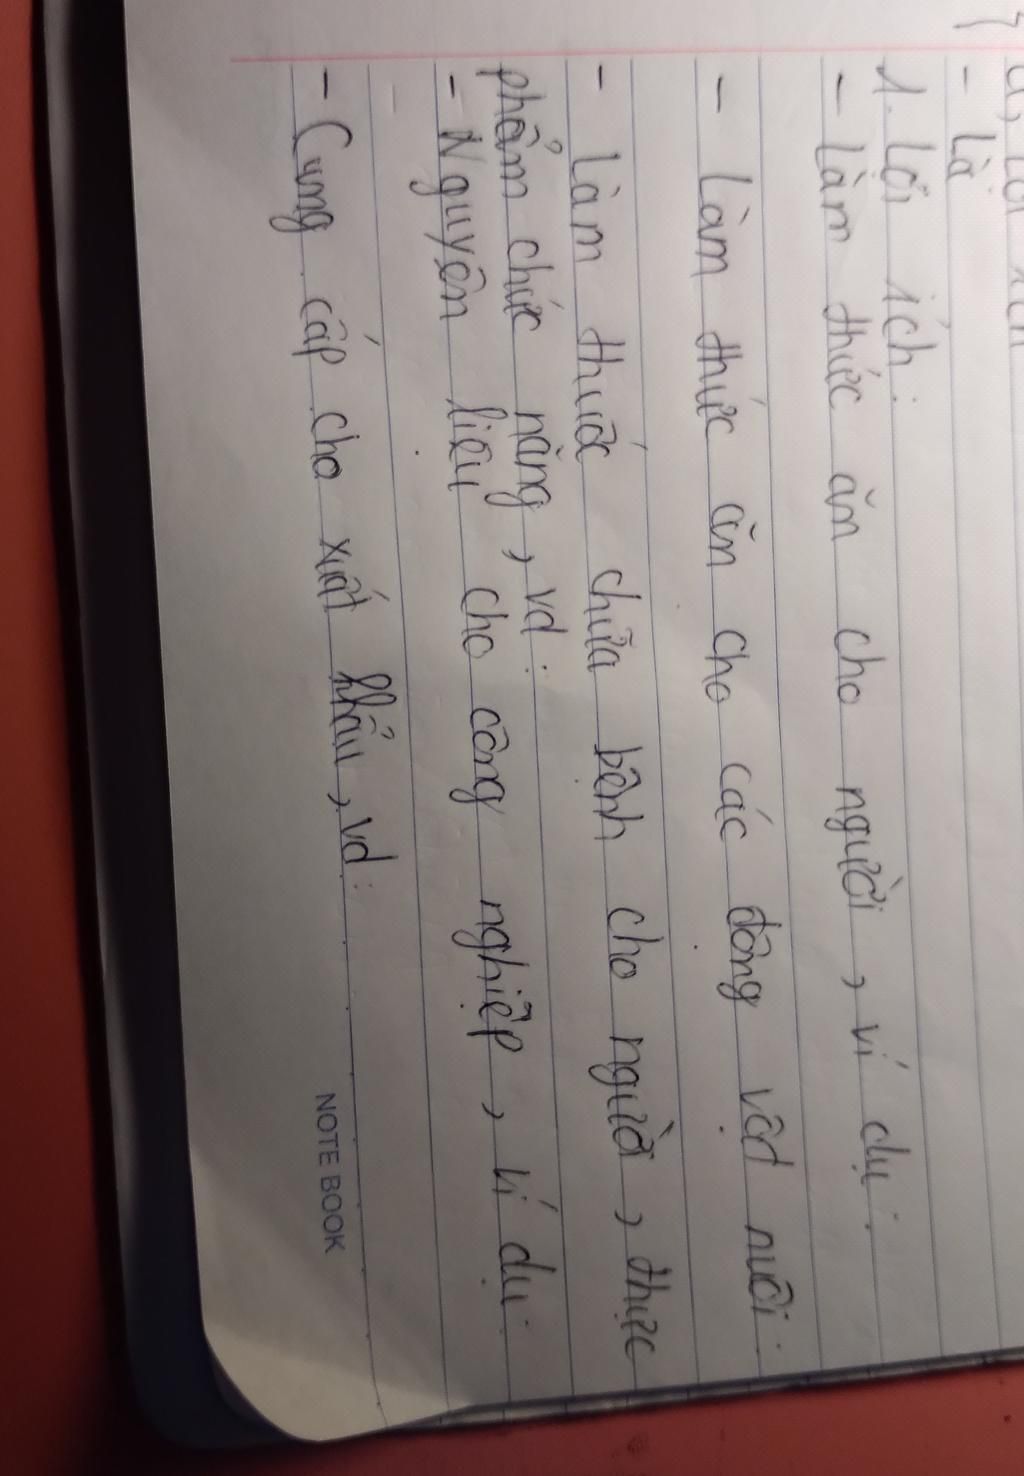 - Là
1. Lợi ích:
- Làm thức ăn cho người, ví dụ:
- Làm thức ăn cho các động vật nuôi:
- Làm thuốc chữa bệnh cho người, thực
phẩm chức năng, vd:
- Nguyên liệu cho công nghiệp, ví dụ:
- Cung cấp cho xuất khẩu, vd:
NOTE BOOK